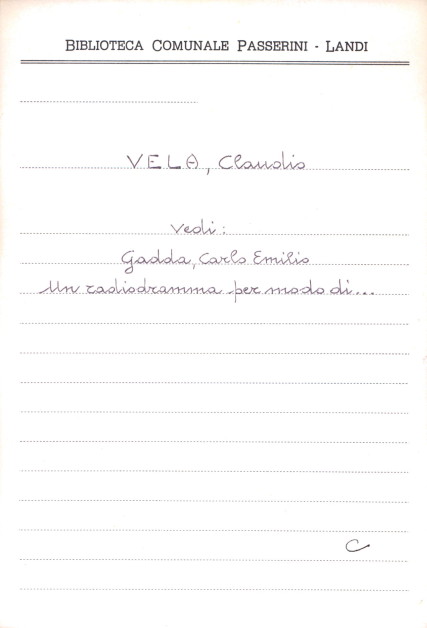 BIBLIOTECA COMUNALE PASSERINI - LANDI
VELA, Claudio
Vedi:
Gadda, Carlo Emilio
Un radiodramma per modo di...
C